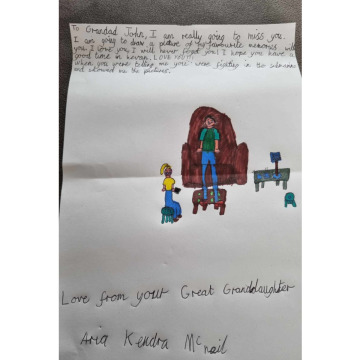 To Grandad John, I am really going to miss you.
I am going to draw a picture of my favourite memories with
you. I love you, I will never forget you! I hope you have a
good time in heven, LOVE
when you were telling me you were fighting in the submarine
and showed me the pictures.
Love from your Great Granddaughter
Aria Kendra McNeil